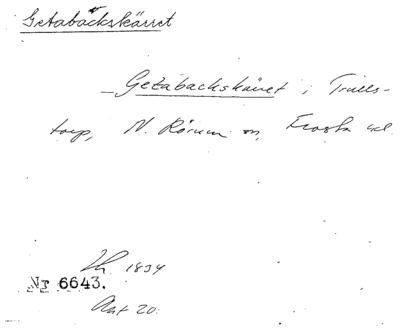 Getabäckskärret
Getabackskärret i Trulls-
torp, N. Rörum sn, Frosta hd
1834
Nr 6643.
Akt 20.